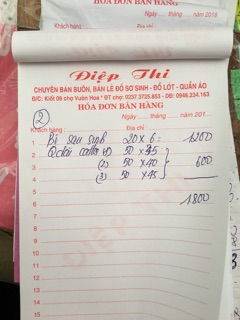 HÓA ĐƠN BÁN HÀNG
Ngày ..... tháng ..... năm 201
Điệp Thi
CHUYÊN BÁN BUÔN, BÁN LẺ ĐỒ SƠ SINH - ĐỒ LÓT - QUẦN ÁO
Đ/C: Kiốt 09 chợ Vườn Hoa * ĐT chợ: 0237.3725.853 - DĐ: 0948.234.163
HÓA ĐƠN BÁN HÀNG
2
Ngày ..... tháng ..... năm 201...
Khách hàng : Địa chỉ :
1. Bộ sau sinh 20 x 6 = 1200
2. Q dài 50 x 35
3. (2) 50 x 40 600
4. (3) 50 x 45
5.
6. 1800
7.
8.
9.
10.
11.
12.
13.
14.
15.